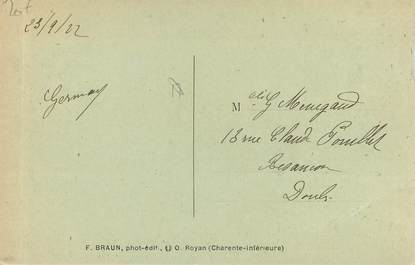 23/9/22
Germay
M elle G Mougand
18 rue Claude Pouillet
Besançon
Doubs
F. BRAUN, phot-édit., O. Royan (Charente-inférieure)